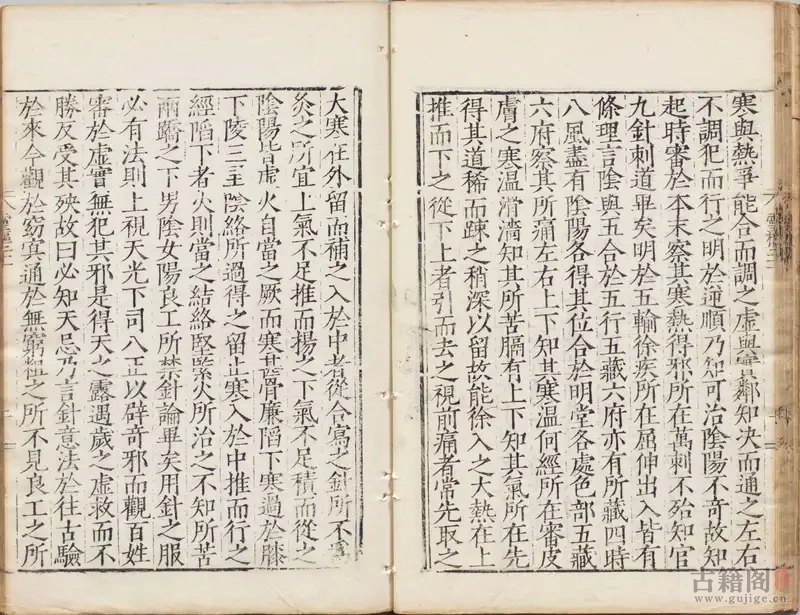 寒與熱爭能合而調之虛與實鄰知決而通之左右
不調犯而行之明於逆順乃知可治陰陽不奇故知
起時審於本末察其寒熱得邪所在萬刺不殆知官
九針刺道畢矣明於五輸徐疾所在屈伸出入皆有
條理言陰與五合於五行五藏六府亦有所藏四時
八風盡有陰陽各得其位合於明堂各處色部五藏
六府察其所痛左右上下知其寒温何經所在審皮
膚之寒温滑濇知其所苦膈有上下知其氣所在先
得其道稀而踈之稍深以留故能徐入之大熱在上
推而下之從下上者引而去之視前痛者常先取之
大寒在外留而補之入於中者從合寫之針所不為
灸之所宜上氣不足推而揚之下氣不足積而從之
陰陽皆虛火自當之厥而寒甚骨廉陷下寒過於膝
下陵三里陰絡所過得之留止寒入於中推而行之
經陷下者火則當之結絡堅緊火所治之不知所苦
兩蹻之下男陰女陽良工所禁針論畢矣用針之服
必有法則上視天光下司八正以辟奇邪而觀百姓
審於虛實無犯其邪是得天之露遇歲之虛救而不
勝反受其殃故曰必知天忌乃言針意法於往古驗
於來今觀於窈冥通於無窮粗之所不見良工之所
古籍阁
www.gujige.cn